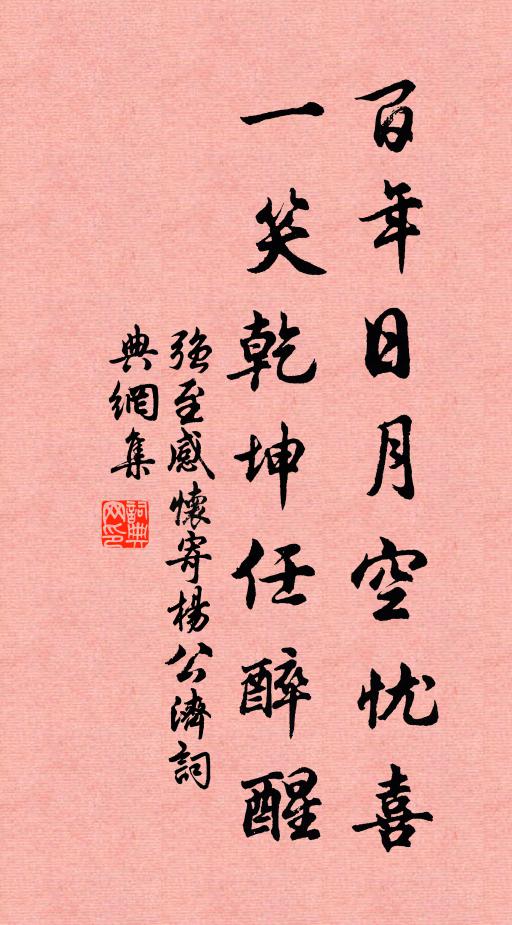 百年日月空忧喜
一笑乾坤任醉醒
强至感懷寄楊公濟詞
典網集
詞典網印